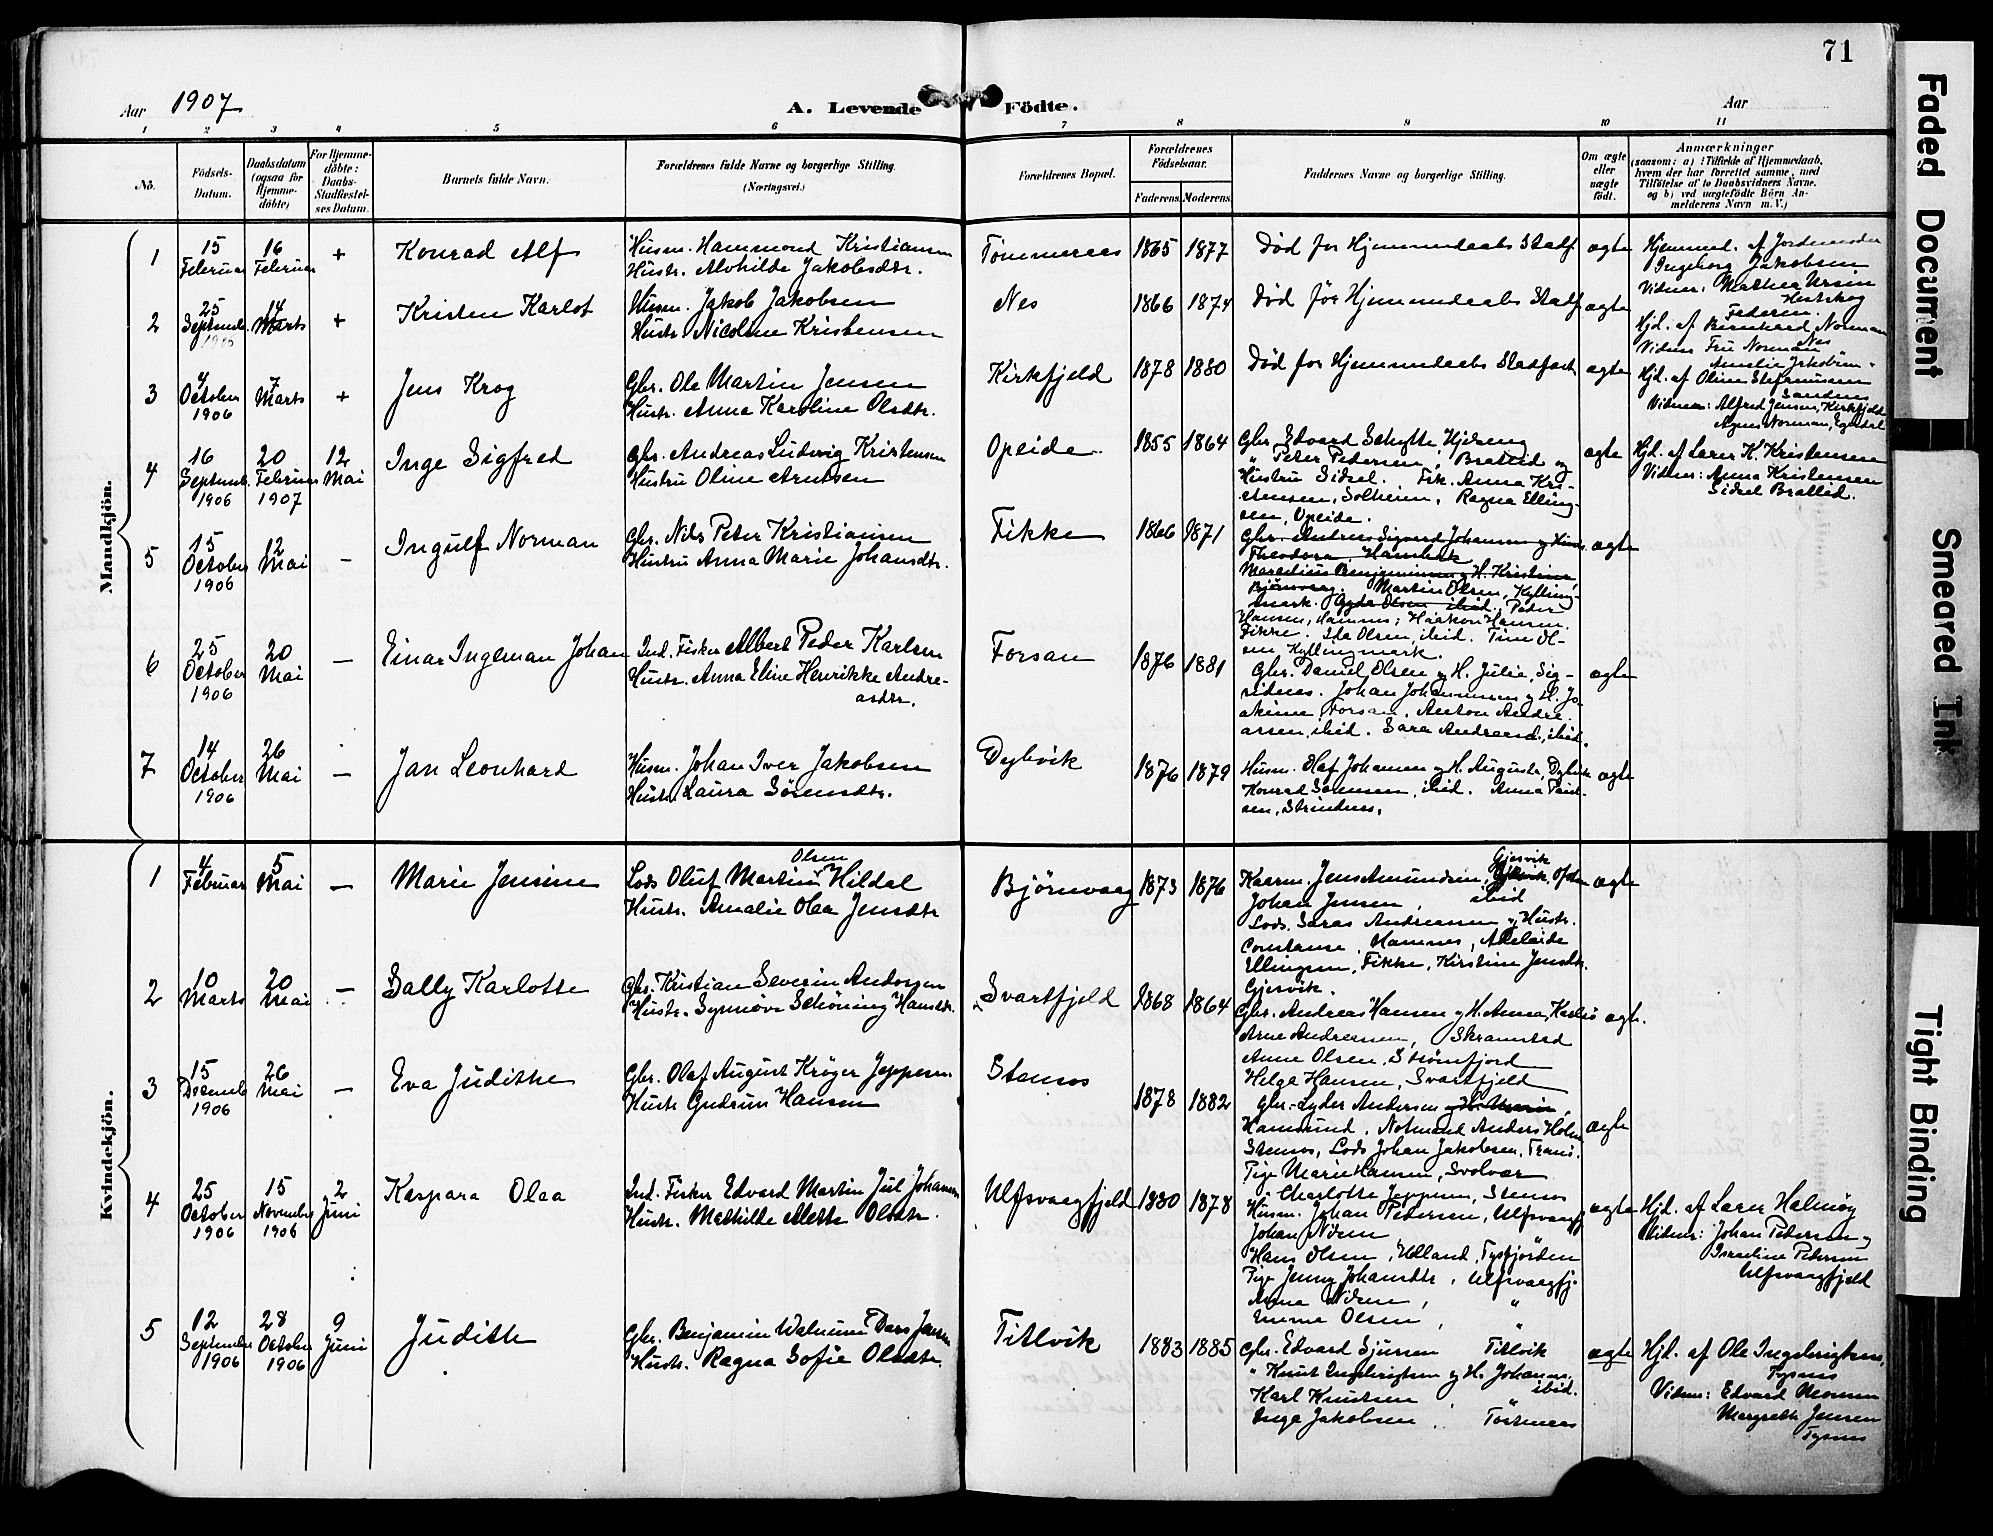 71
Aar 1907
A. Levende Födte.
Aar
1 2 3 4 5 6 7 8 9 10 11
No.
Födsels-
Datum.
Daabsdatum
(ogsaa for
Hjemme-
döbte)
For Hjemme-
döbte:
Daabs-
Stadfæstel-
ses Datum.
Barnets fulde Navn.
Forældrenes fulde Navne og borgerlige Stilling.
(Næringsvei.)
Forældrenes Bopæl.
Forældrenes
Födselsaar.
Faderens.
Moderens.
Faddernes Navne og borgerlige Stilling.
Om ægte
eller
uægte
födt.
Anmærkninger
(saasom: a) i Tilfælde af Hjemmedaab,
hvem der har forrettet samme, med
Tilföielse af to Daabsvidners Navne,
og b) ved uægtefödte Börn An-
melderens Navn m. V.)
Mandkjön.
1
15
Februar
16
Februar
+
Konrad Alf
Husm. Hammond Kristiansen
Hustr. Alvhilde Jakobsdtr.
Tømmeraas
1865
1877
Død før Hjemmedaabs Stadf
ægte
Hjemmed. af Jordemoder
Ingeborg Jakobsen
Vidner, Mathea Ursin
Hestskog
Federen.
2
25
Septemb.
1906
14
Marts
+
Kristen Karlot
Husm. Jakob Jakobsen
Hustr. Nicoline Kristensen
Nes
1866
1874
Død før Hjemmedaabs Stadf
ægte
Hjd. af Bernhard Norman
Nes
Vidner Fru Norman
Amelie Jakobsen
3
4
October
1906
7
Marts
+
Jens Krog
Gbr. Ole Martin Jensen
Hustr. Anna Karoline Olsdtr.
Kirkfjeld
1878
1880
Død før Hjemmedaabs Stadfæst
ægte
Hjd. af Oline Stefanussen
Sandnes
Vidner: Alfred Jensen, Kirkfjeld
Agnes Norman, Egedal
4
16
Septemb.
1906
20
Februar
1907
12
Mai
Inge Sigfred
Gbr. Andreas Ludvig Kristensen
Hustru Oline Arntsen
Opeide
1855
1864
Gbr. Edvard Schytte, Hjelseng
" Peter Pedersen, Bratlid og
Hustru Sidsel. Frk. Anna Kri-
stensen, Solheim, Ragna Elling-
sen, Opeide.
ægte
Hjd. af Lærer K. Kristensen
Vidner: Anna Kristensen
Sidsel Bratlid.
5
15
October
1906
12
Mai
—
Ingulf Norman
Gbr. Nils Peter Kristiansen
Hustru Anna Marie Johansdtr.
Fikke
1866
1871
Gbr. Andreas Sigvard Johansen og Hustr.
Theodora Hambek
Maredius Benjaminsen og H. Kristine,
Bjørnvaag. Martin Olsen, Kylling-
mark. Gyda Olsen ibid. Peder
Hansen, Hamnes; Haakon Hansen.
Fikke. Ida Olsen, ibid. Tine Ol-
sen Kyllingmark.
ægte
6
25
October
1906
20
Mai
—
Einar Ingeman Johan
Ind. Fisker Albert Peder Karlsen
Hustr. Anna Eline Henrikke Andre-
asdtr.
Forsan
1876
1881
Gbr. Daniel Olsen og H. Julie, Sig-
ridnes. Johan Johannessen og H. Jo-
akime, Forsan. Anton Andre-
assen, ibid. Sara Andreasd., ibid.
ægte
7
14
October
1906
26
Mai
—
Jan Leonhard
Husm. Johan Iver Jakobsen
Hustr. Laura Sørensdtr.
Dybvik
1876
1879
Husm. Olaf Johansen og H. Auguste, Dybvik
Konrad Sørensen, ibid. Anna Paul-
sen, Strindnes.
ægte
Kvindekjön.
1
4
Februar
5
Mai
—
Marie Jensine
Olsen
Lods Oluf Martin Hildal
Hustr. Amalie Olea Jensdtr
Bjørnvaag
1873
1876
Gjesvik
Kaarm. Jens Amundsen, Ofoten
Johan Jensen, ibid
Lods. Saras Andreassen og Hustr.
Constanse, Hamnes, Adelaide
Ellingsen, Fikke, Kirstine Jensdtr.
Gjesvik.
ægte
2
10
Marts
20
Mai
—
Sally Karlotte
Gbr. Kristian Severin Andorsen
Hustr. Synnøve Schöning Hansdtr.
Svartfjeld
1868
1864
Gbr. Andreas Hansen og H. Anna, Karlsö
Arne Andreassen, Skramstad
Anne Olsen, Strömfjord
Helga Hansen, Svartfjeld
ægte.
3
15
Decemb
1906
26
Mai
—
Eva Judithe
Gbr. Olaf August Krøger Jeppesen
Hustr Gudrun Hansen
Stensos
1878
1882
Gbr. Lyder Andersen og H. Marie,
Hamsund. Notmand Anders Holm
Stensos, Lods Johan Jakobsen, Tranö.
Pige Marie Hansen, Svolvær
" Charlotte Jeppesen, Stensos
ægte
4
25
October
1906
15
Novembr
1906
2
Juni
Kaspara Olea
Ind. Fisker Edvard Martin Jul Johansen
Hustr. Mathilde Mette Olsdtr.
Ulfsvaagfjeld
1880
1878
Husm. Johan Pedersen, Ulfsvaagfj
Johan Nilsen "
Hans Olsen, Helland, Tysfjorden
Pige Jenny Johansdtr, Ulfsvaagfj.
Anna Nilsen, "
Emma Olsen, "
ægte
Hjd. af Lærer Halmöy
Vidner: Johan Pedersen og
Israeline Pedersen
Ulfsvaagfjeld
5
12
Septembr
1906
28
October
1906
9
Juni
Judith
Gbr. Benjamin Walnum Dass Jensen
Hustr. Ragna Sofie Olsdtr.
Titlvik
1883
1885
Gbr. Edvard Sjursen Titlvik
" Knut Ingebrigtsen og H. Johanna, ibid.
Karl Knutsen "
Inga Jakobsen, Tortenaas
ægte
Hjd. af Ole Ingebrigtsen,
Tysnes
Vidner: Edvard Monsen
Margrethe Jensen
Tysnes
Faded Document
Smeared Ink
Tight Binding